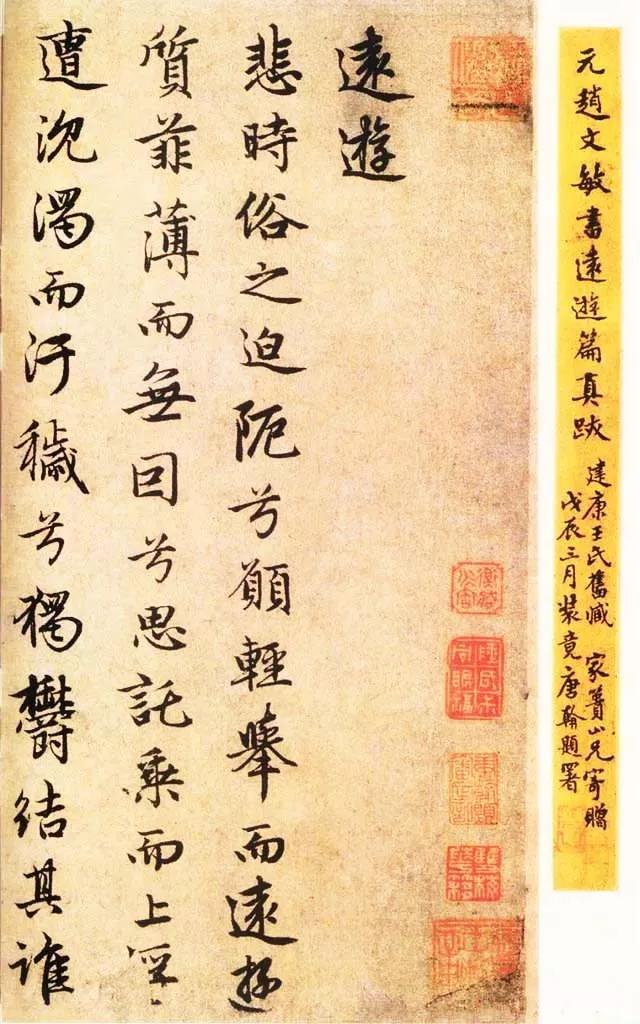 元趙文敏書遠遊篇真跡
建康王氏舊臧 家蕢山兄寄贈
戊辰三月裝竟唐翰題署
遠遊
悲時俗之迫阨兮願輕舉而遠遊
質菲薄而無因兮思託乘而上浮
遭沈濁而汙穢兮獨鬱結其誰